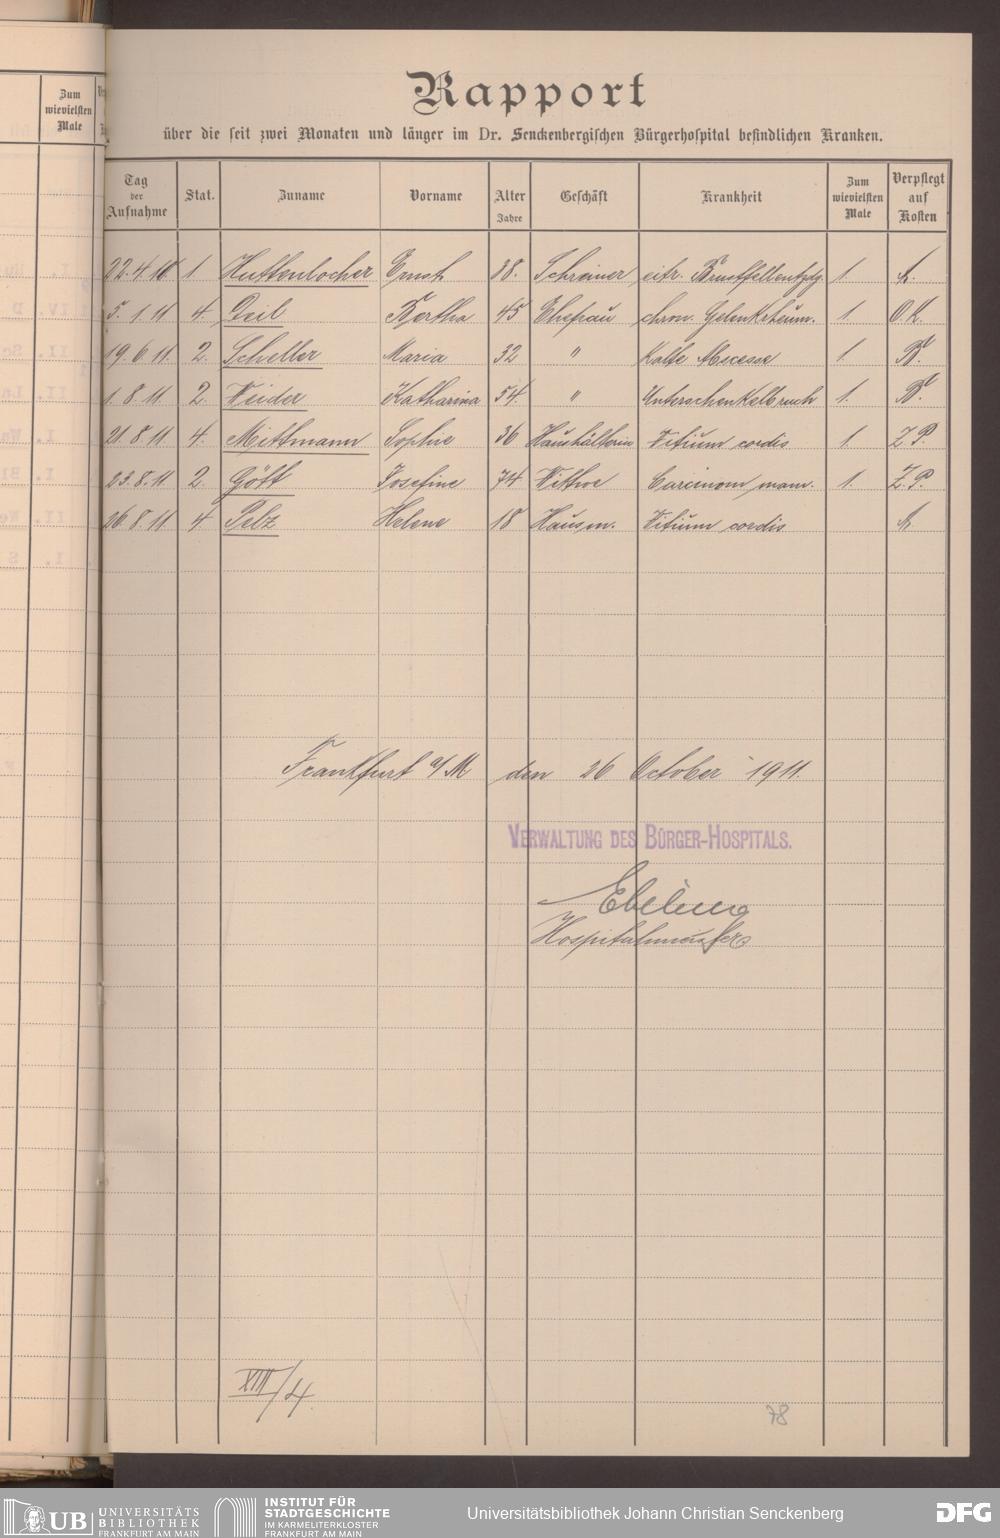 Rapport
über die seit zwei Monaten und länger im Dr. Senckenbergischen Bürgerhospital befindlichen Kranken.
Zum wievielsten Male
Tag der Aufnahme Stat. Zuname Vorname Alter Jahre Geschäft Krankheit Zum wievielsten Male Verpflegt auf Kosten
22.4.10 1. Huttenlocher Ernst 38. Schreiner eitr. Brustfellentzdg. 1.
5.1.11 4. Deil Bertha 45 Ehefrau chron. Gelenkrheum. 1. O.K.
19.6.11. 2. Scheller Maria 32 " Kalte Abscesse 1. B.
1.8.11 2. Weider Katharina 54. " Unterschenkelbruch 1. B.
21.8.11 4. Mittmann Sophie 36 Haushälterin Vitium cordis 1. Z.P.
23.8.11 2. Gött Josefine 74 Wittwe Carcinom mam. 1. Z.P.
26.8.11 4 Pelz Helene 18 Hausm. Vitium cordis
Frankfurt a/M den 26 October 1911.
VERWALTUNG DES BÜRGER-HOSPITALS.
Ebeling
Hospitalmeister
XIII/4.
78
UB UNIVERSITÄTS BIBLIOTHEK FRANKFURT AM MAIN
INSTITUT FÜR STADTGESCHICHTE IM KARMELITERKLOSTER FRANKFURT AM MAIN
Universitätsbibliothek Johann Christian Senckenberg
DFG